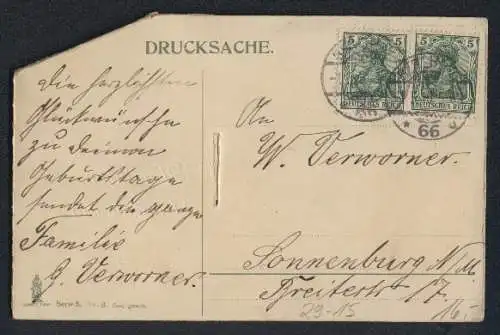 DRUCKSACHE.
5 5
5 5
DEUTSCHES REICH
DEUTSCHES REICH
* 66
die herzlichsten
Glückwünsche
zu deinem
Geburtstage
sendet die ganze
Familie
G. Verworner.
An
W. Verworner.
Sonnenburg N/M.
Breitestr 17.
29-15
16,-